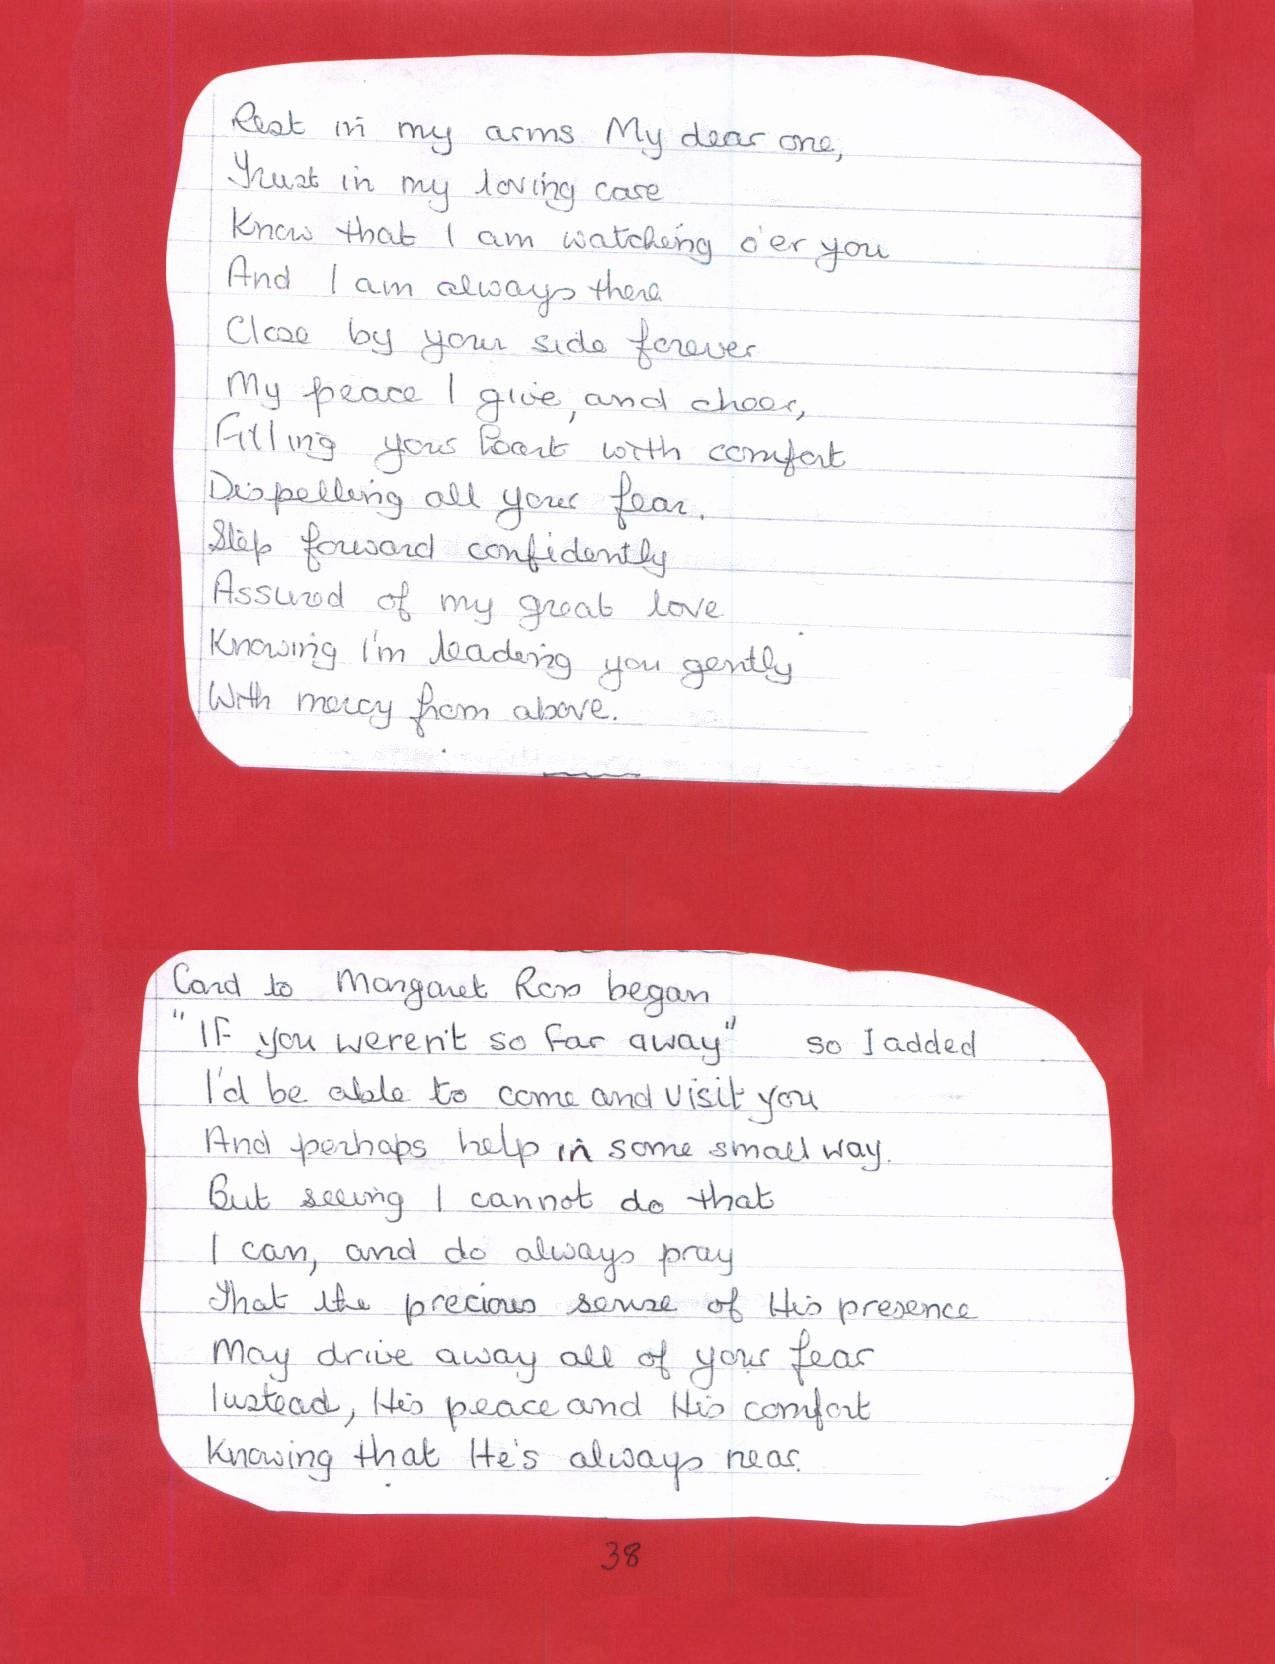 Rest in my arms My dear one,
Trust in my loving care
Know that I am watching o'er you
And I am always there
Close by your side forever
My peace I give, and cheer,
Filling your heart with comfort
Dispelling all your fear.
Step forward confidently
Assured of my great love
Knowing I'm leading you gently
With mercy from above.
Card to Margaret Ross began
"If you weren't so far away" so I added
I'd be able to come and visit you
And perhaps help in some small way.
But seeing I cannot do that
I can, and do always pray
That the precious sense of His presence
May drive away all of your fear
Instead, His peace and His comfort
Knowing that He's always near.
38